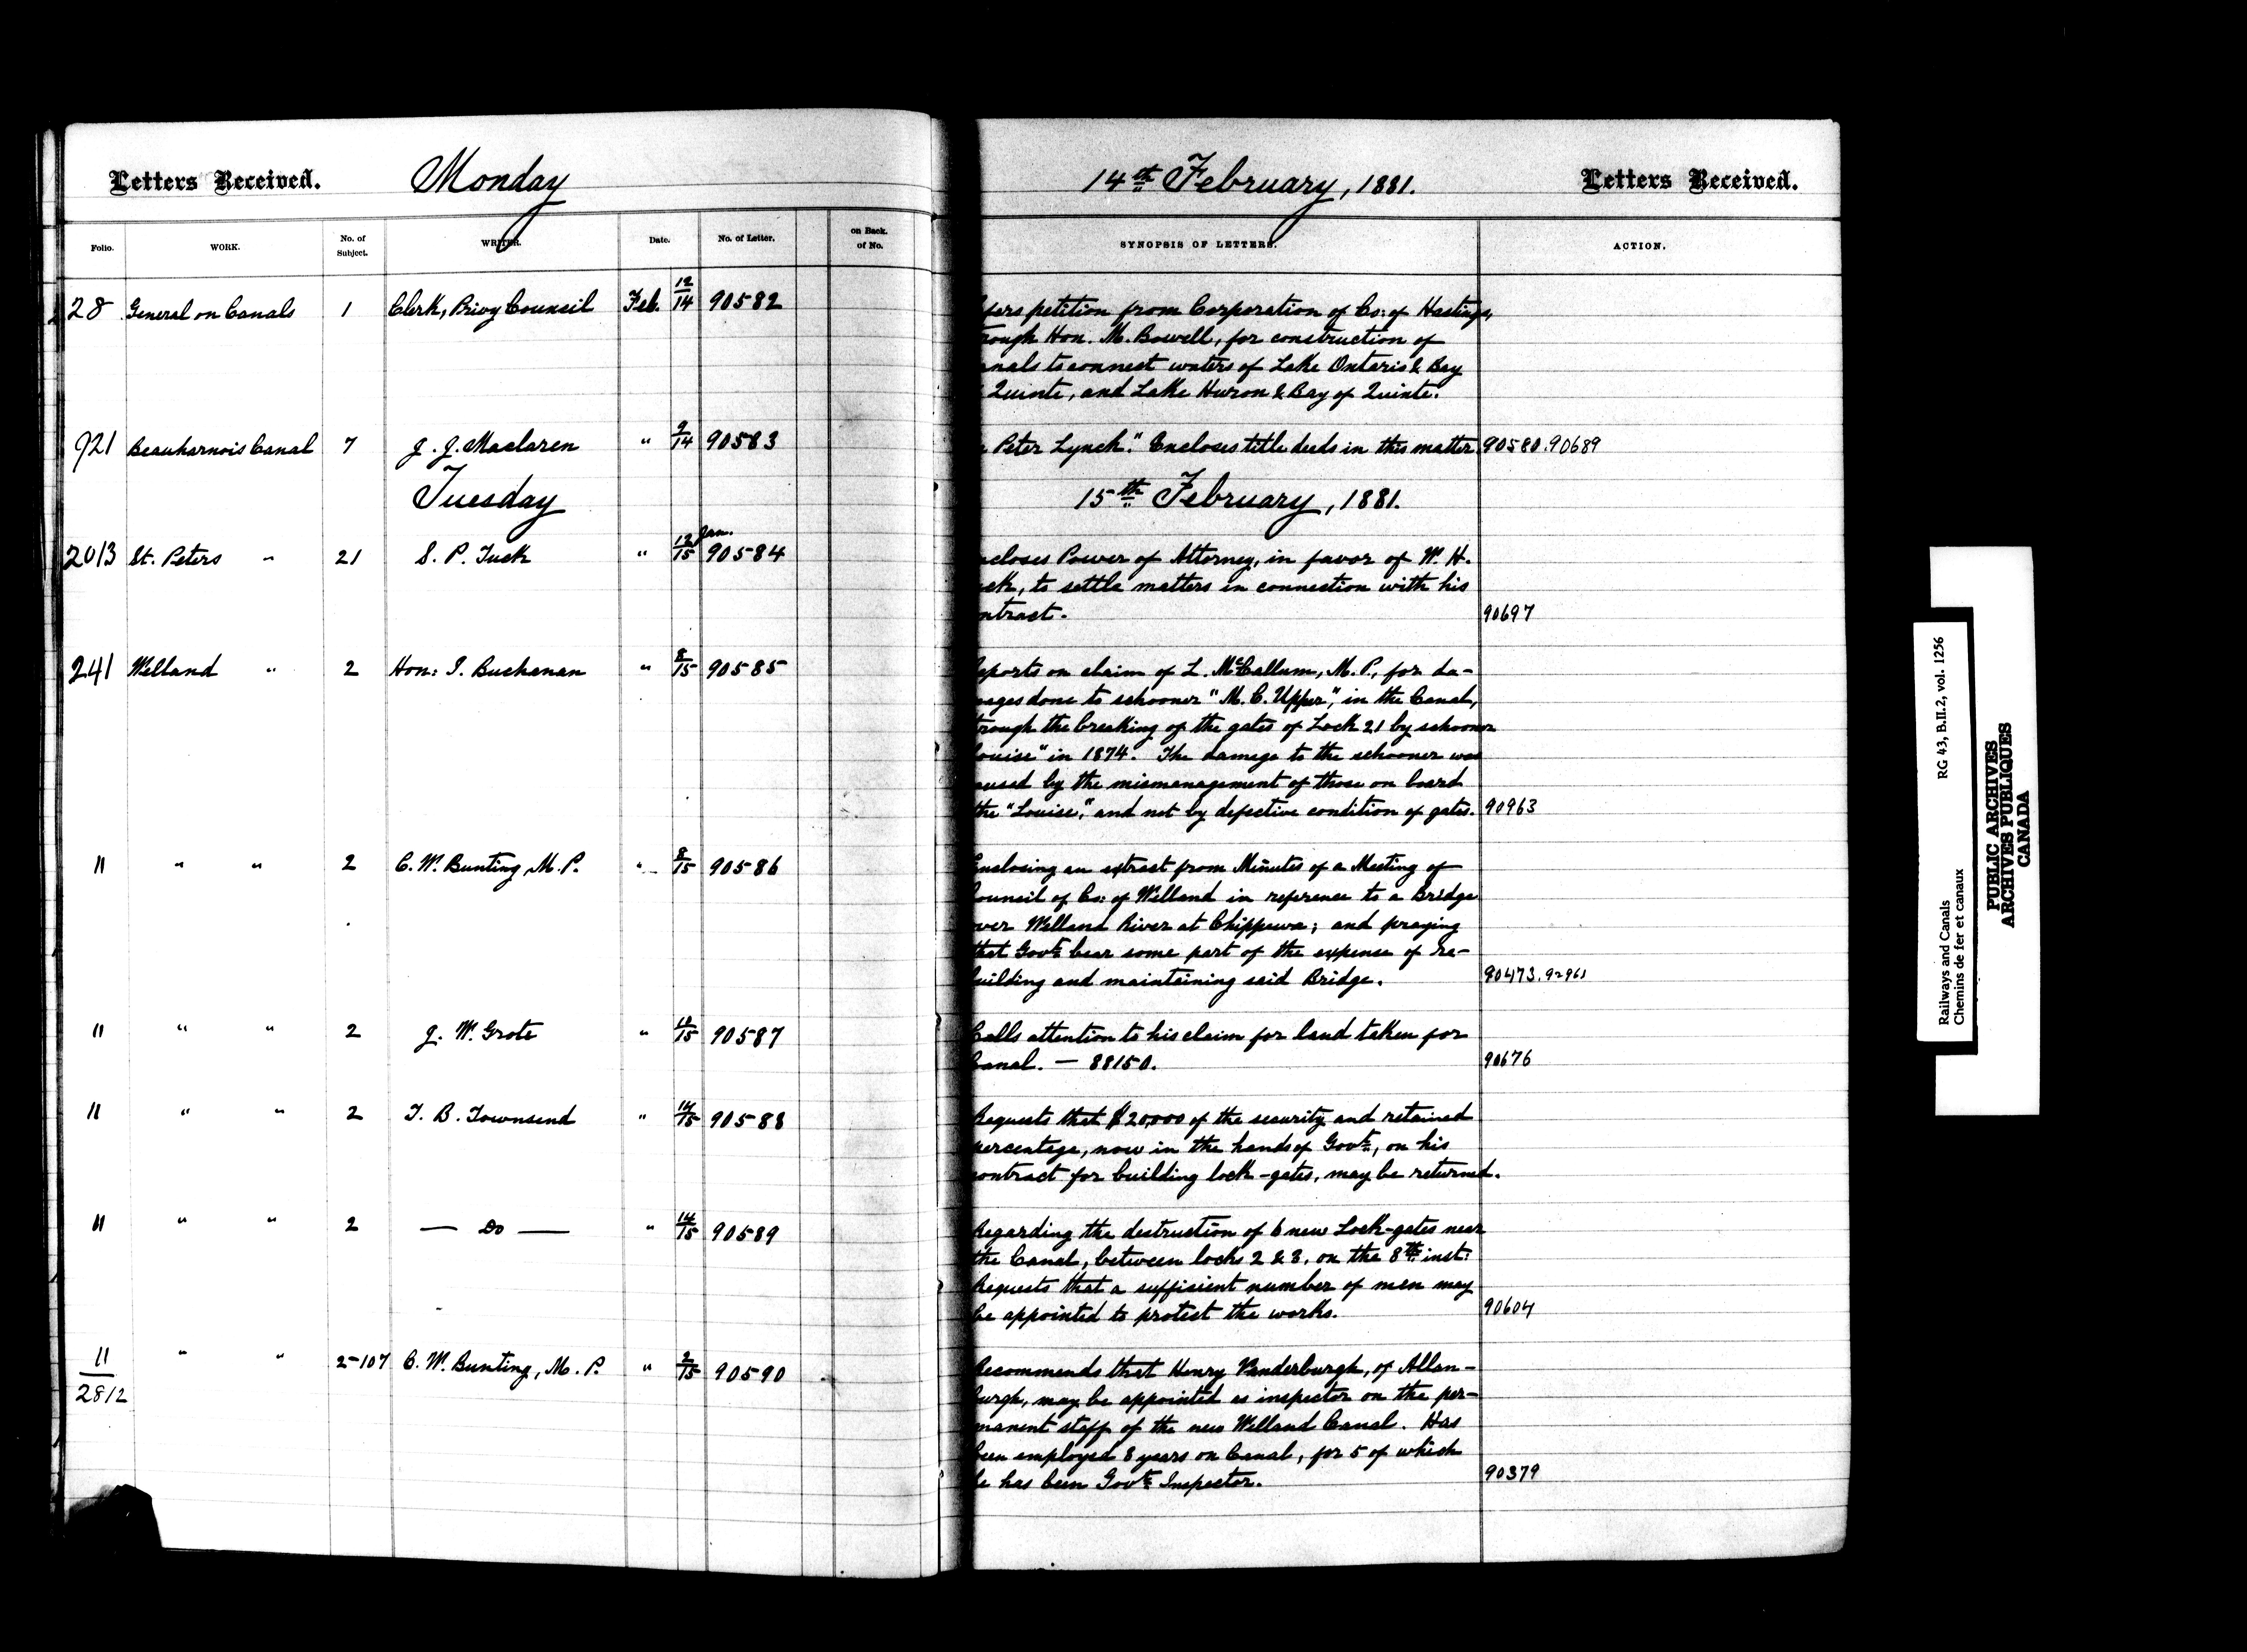 Letters Received. Monday 14th February, 1881. Letters Received.
Folio. WORK. No. of Subject. WRITER. Date. No. of Letter. on Back. of No. SYNOPSIS OF LETTERS. ACTION.
28 General on Canals 1 Clerk, Privy Council Feb. 12/14 90582 fers petition from Corporation of Co: of Hastings,
rough Hon. M. Bowell, for construction of
anals to connect waters of Lake Ontario & Bay
Quinte, and Lake Huron & Bay of Quinte.
921 Beauharnois Canal 7 J. J. Maclaren " 9/14 90583 Peter Lynch." Encloses title deeds in this matter. 90580. 90689
Tuesday 15th February, 1881.
2013 St. Peters " 21 S. P. Tuck " 12/15 Jan. 90584 ncloses Power of Attorney, in favor of W. H.
uck, to settle matters in connection with his
ntract. 90697
241 Welland " 2 Hon: I. Buchanan " 8/15 90585 eports on claim of L. McCallum, M. P., for da-
mages done to schooner "M. C. Upper," in the Canal,
rough the breaking of the gates of Lock 21 by schooner
ouise" in 1874. The damage to the schooner was
aused by the mismanagement of those on board
the "Louise," and not by defective condition of gates. 90963
11 " " 2 C. W. Bunting, M. P. " 8/15 90586 Enclosing an extract from Minutes of a Meeting of
ouncil of Co: of Welland in reference to a Bridge
over Welland River at Chippewa; and praying
that Govt. bear some part of the expense of re-
uilding and maintaining said Bridge. 90473. 92961
11 " " 2 J. W. Grote " 12/15 90587 Calls attention to his claim for land taken for
Canal. — 88150. 90676
11 " " 2 T. B. Townsend " 14/15 90588 Requests that $20,000 of the security and retained
percentage, now in the hands of Govt., on his
contract for building lock-gates, may be returned.
11 " " 2 — Do — " 14/15 90589 Regarding the destruction of 6 new Lock-gates near
the Canal, between locks 2 & 3, on the 8th inst:
Requests that a sufficient number of men may
be appointed to protect the works. 90604
11/2812 " " 2-107 C. W. Bunting, M. P. " 2/15 90590 Recommends that Henry Vanderburgh, of Allan-
burgh, may be appointed as inspector on the per-
manent staff of the new Welland Canal. Has
been employed 8 years on Canal, for 5 of which
he has been Govt. Inspector. 90379
Railways and Canals RG 43, B.II.2, vol. 1256
Chemins de fer et canaux
PUBLIC ARCHIVES
ARCHIVES PUBLIQUES
CANADA